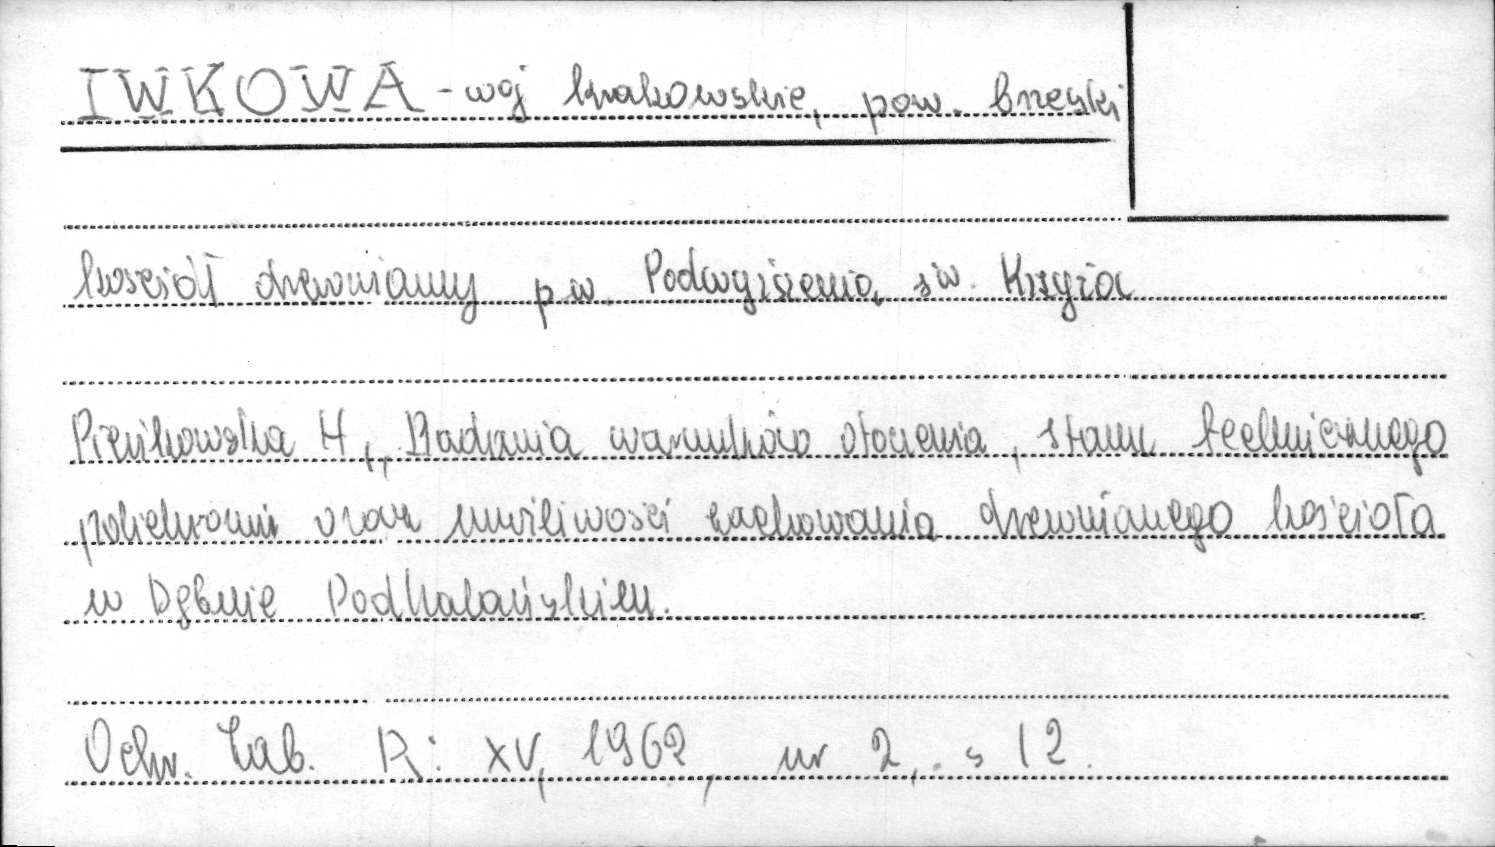 IWKOWA - woj krakowskie, pow. brzeski
kościół drewniany p.w. Podwyższenia św. Krzyża
Pieńkowska H., „Badania warunków otoczenia, stanu technicznego
polichromii oraz możliwości zachowania drewnianego kościoła
w Dębnie Podhalańskiem.
Ochr. Zab. R: XV, 1962, nr 2, s 12.